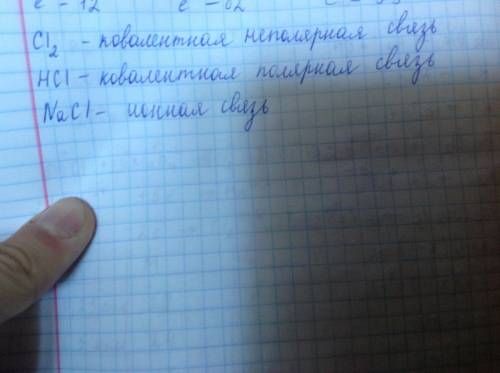 e - 12
Cl₂ - ковалентная неполярная связь
HCl - ковалентная полярная связь
NaCl - ионная связь